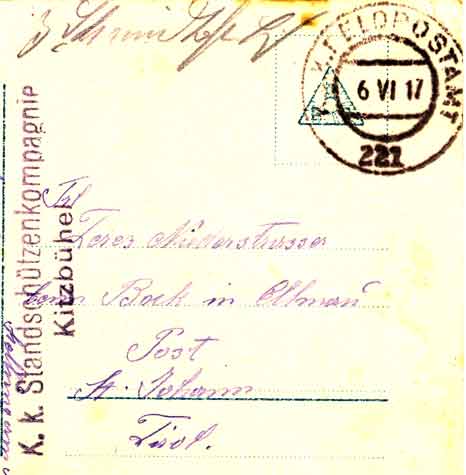 K. K. FELDPOSTAMT
6 VI 17
221
K. k. Standschützenkompagnie
Kitzbühel
Frl
Teres Niederstrasser
beim Bock in Ellmau
Post
St. Johann
Tirol.